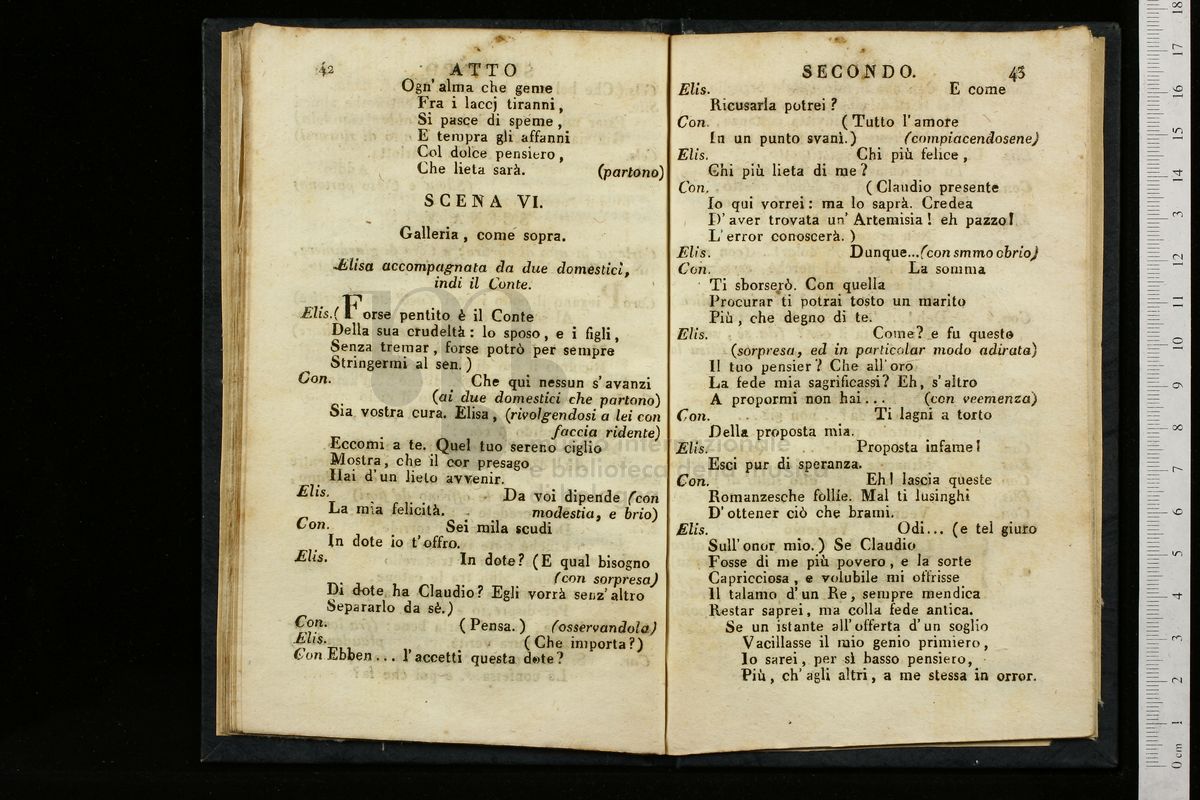 42
ATTO
Ogn' alma che geme
Fra i laccj tiranni,
Si pasce di speme,
E tempra gli affanni
Col dolce pensiero,
Che lieta sarà. (partono)
SCENA VI.
Galleria, come sopra.
Elisa accompagnata da due domestici,
indi il Conte.
Elis. (Forse pentito è il Conte
Della sua crudeltà: lo sposo, e i figli,
Senza tremar, forse potrò per sempre
Stringermi al sen.)
Con. Che qui nessun s' avanzi
(ai due domestici che partono)
Sia vostra cura. Elisa, (rivolgendosi a lei con
faccia ridente)
Eccomi a te. Quel tuo sereno ciglio
Mostra, che il cor presago
Hai d' un lieto avvenir.
Elis. Da voi dipende (con
La mia felicità. modestia, e brio)
Con. Sei mila scudi
In dote io t' offro.
Elis. In dote? (E qual bisogno
(con sorpresa)
Di dote ha Claudio? Egli vorrà senz' altro
Separarlo da sè.)
Con. (Pensa.) (osservandola)
Elis. (Che importa?)
Con Ebben... l' accetti questa dote?
SECONDO.
43
Elis. E come
Ricusarla potrei?
Con. (Tutto l' amore
In un punto svanì.) (compiacendosene)
Elis. Chi più felice,
Chi più lieta di me?
Con. (Claudio presente
Io qui vorrei: ma lo saprà. Credea
D' aver trovata un' Artemisia! eh pazzo!
L' error conoscerà.)
Elis. Dunque...(con smmo obrio)
Con. La somma
Ti sborserò. Con quella
Procurar ti potrai tosto un marito
Più, che degno di te.
Elis. Come? e fu questo
(sorpresa, ed in particolar modo adirata)
Il tuo pensier? Che all' oro
La fede mia sagrificassi? Eh, s' altro
A propormi non hai... (con veemenza)
Con. Ti lagni a torto
Della proposta mia.
Elis. Proposta infame!
Esci pur di speranza.
Con. Eh! lascia queste
Romanzesche follie. Mal ti lusinghi
D' ottener ciò che brami.
Elis. Odi... (e tel giuro
Sull' onor mio.) Se Claudio
Fosse di me più povero, e la sorte
Capricciosa, e volubile mi offrisse
Il talamo d' un Re, sempre mendica
Restar saprei, ma colla fede antica.
Se un istante all' offerta d' un soglio
Vacillasse il mio genio primiero,
Io sarei, per sì basso pensiero,
Più, ch' agli altri, a me stessa in orror.